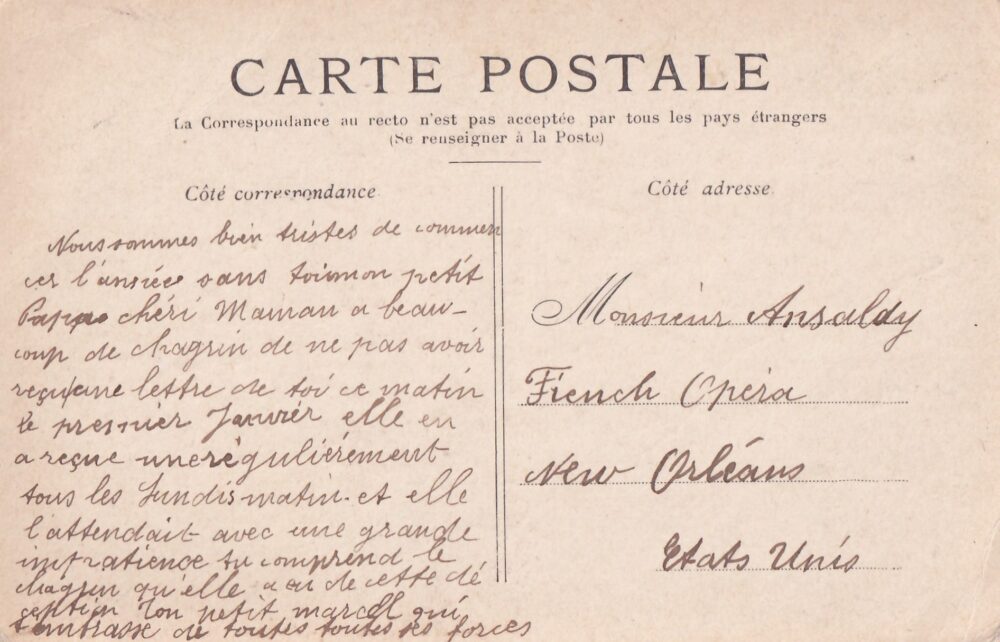 CARTE POSTALE
La Correspondance au recto n'est pas acceptée par tous les pays étrangers
(Se renseigner à la Poste)
Côté correspondance
Nous sommes bien tristes de commen
cer l'année sans toi mon petit
Papa chéri Maman a beau-
coup de chagrin de ne pas avoir
reçu une lettre de toi ce matin
le premier Janvier elle en
a reçue une régulièrement
tous les Lundis matin et elle
l'attendait avec une grande
impatience tu comprend le
chagrin qu'elle a eu de cette dé
ception Ton petit marcel qui
t'embrasse de toutes toutes ses forces
Côté adresse
Monsieur Ansaldy
French Opéra
New Orléans
Etats Unis